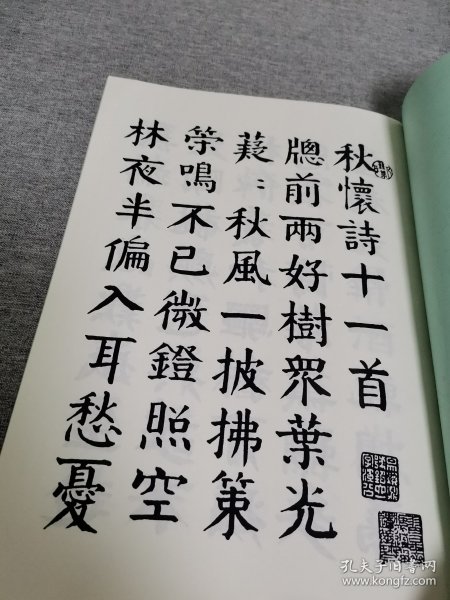 秋懷詩十一首
牕前兩好樹眾葉光
薿〻秋風一披拂策
策鳴不已微鐙照空
牀夜半偏入耳愁憂
孔夫子旧书网
www.kongfz.com